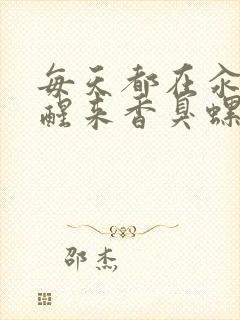 每天都在汆
醒来香臭螺
邵杰